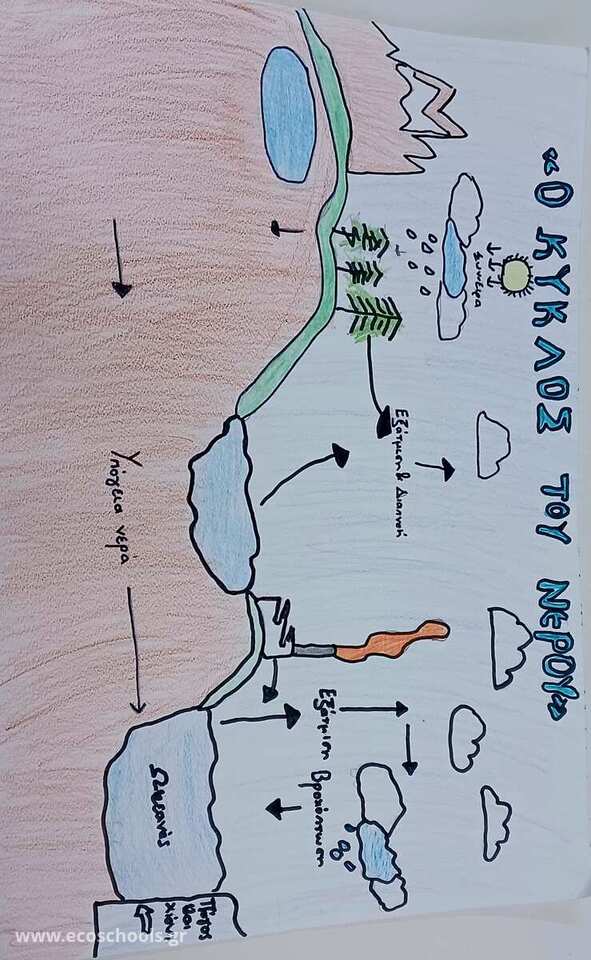 «Ο ΚΥΚΛΟΣ ΤΟΥ ΝΕΡΟΥ»
Σύννεφα
Εξάτμιση & Διαπνοή
Εξάτμιση
Βροχόπτωση
Υπόγεια νερά
Ωκεανός
Πάγος
και
χιόνι
www.ecoschools.gr